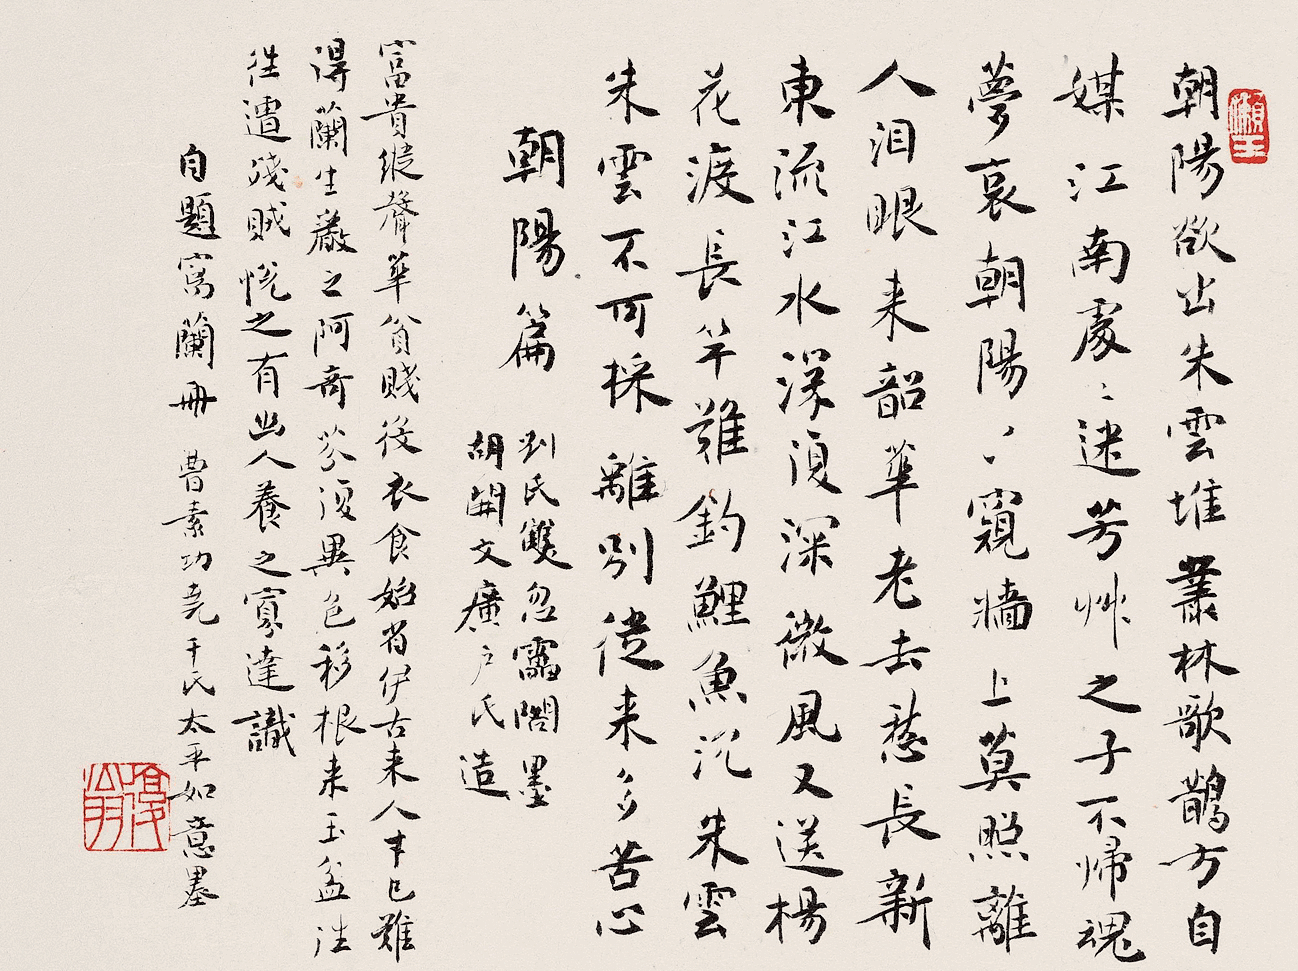 懶王
朝陽欲出朱雲堆叢林歌鵲方自
媒江南處〻迷芳艸之子不歸魂
夢哀朝陽〻〻窺牆上莫照離
人泪眼来韶華老去愁長新
東流江水深復深微風又送楊
花渡長竿難釣鯉魚沉朱雲
朱雲不可採離別從来多苦心
朝陽篇
劉氏雙忽靄閣墨
胡開文廣户氏造
富貴縱聲華貧賤役衣食始省伊古来人才已難
得蘭生巖之阿奇芬復異色移根来玉盆往
往遭殘賊悅之有幽人養之寡達識
自題寫蘭冊
曹素功堯千氏太平如意墨